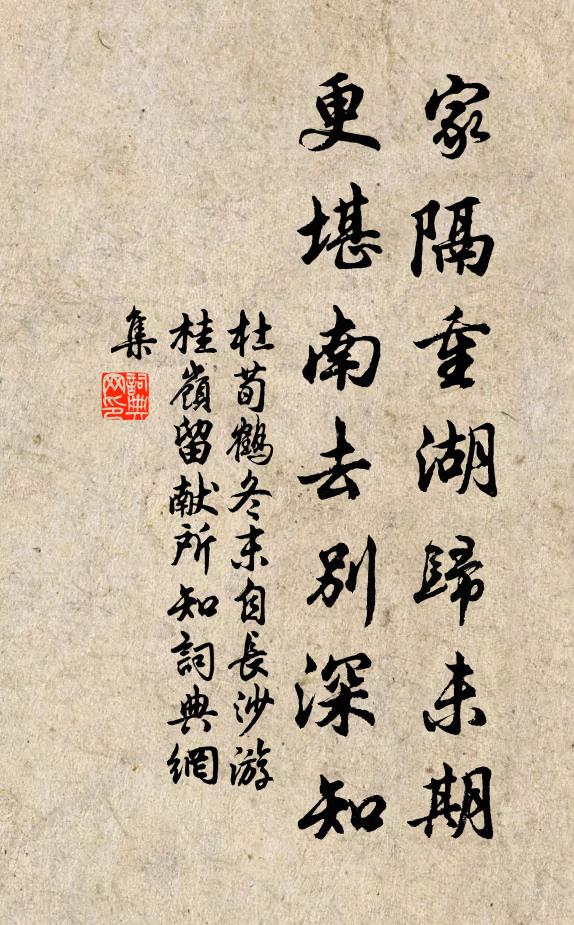 家隔重湖歸未期
更堪南去别深知
杜荀鶴冬末自長沙游
桂嶺留献所知詞典網
集
詞典
网印